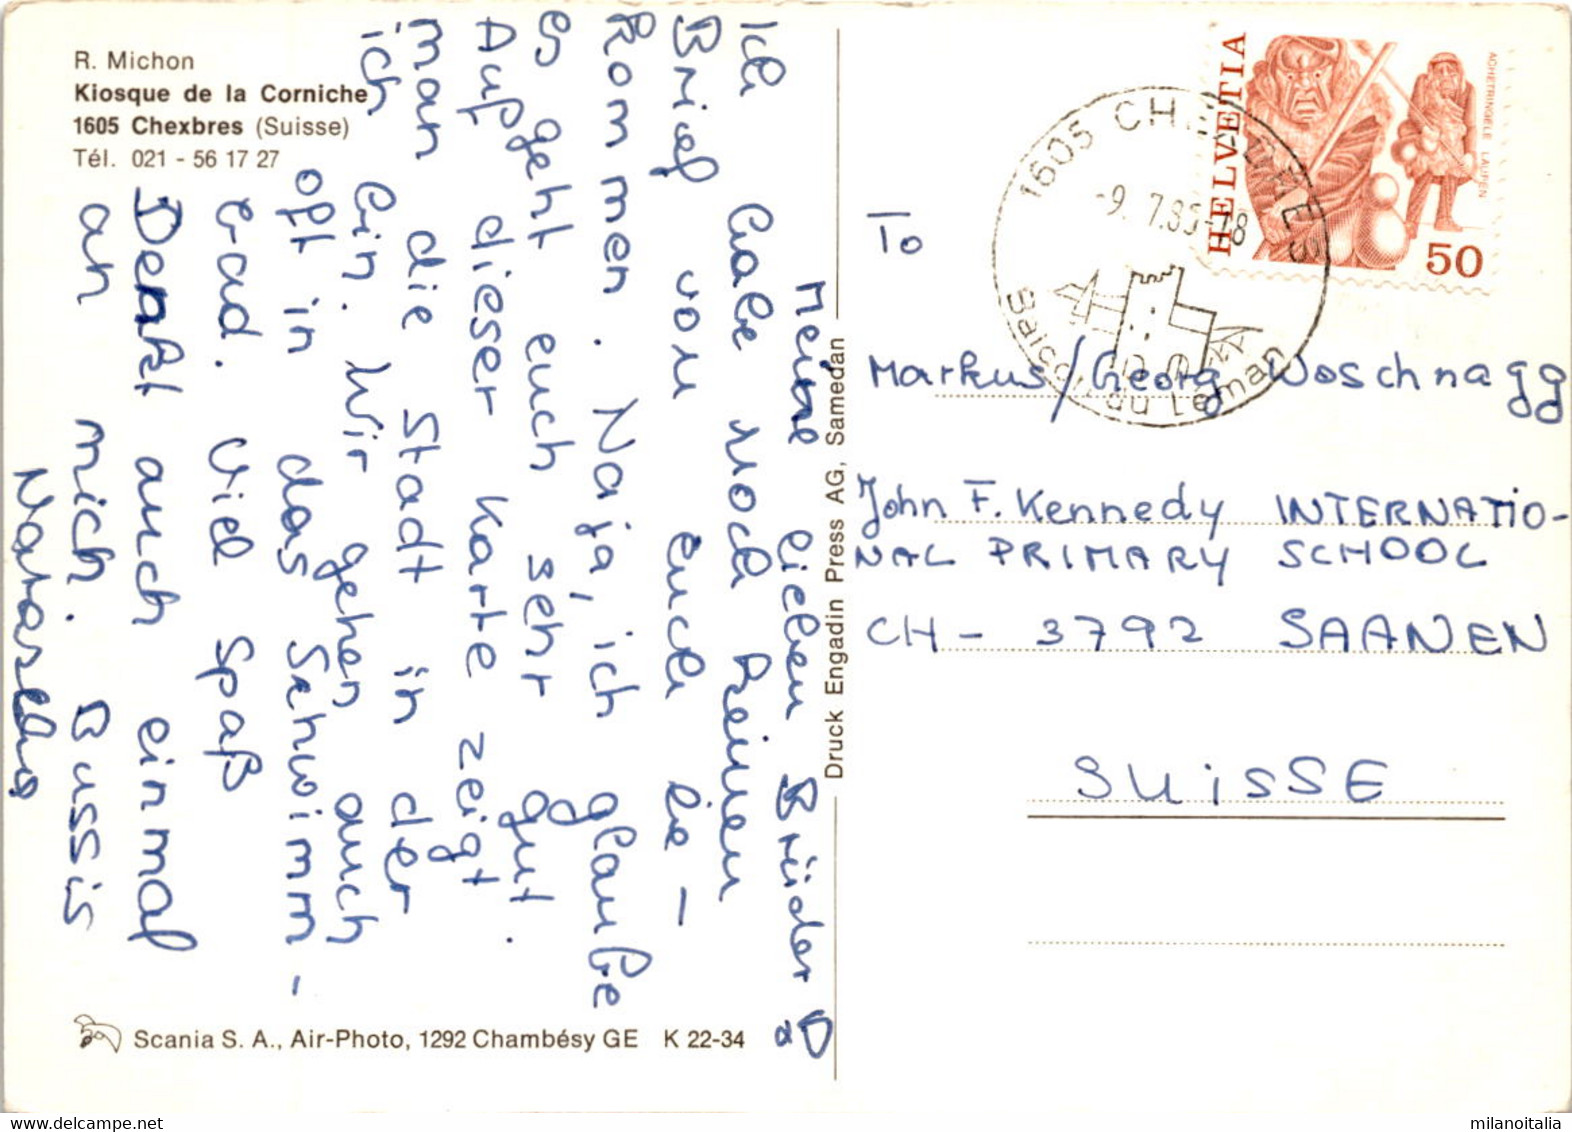 R. Michon
Kiosque de la Corniche
1605 Chexbres (Suisse)
Tél. 021 - 56 17 27
Meine lieben Brüder!
Ich habe noch keinen
Brief von euch be-
kommen. Naja, ich glaube
es geht euch sehr gut.
Auf dieser Karte zeigt
man die Stadt in der
ich bin. Wir gehen auch
oft in das Schwimm-
bad. Viel Spaß
Denkt auch einmal
an mich. Bussis
Natascha
Scania S. A., Air-Photo, 1292 Chambésy GE K 22-34
Druck Engadin Press AG, Samedan
HELVETIA
ACHETRINGELE LAUPEN
50
1605
Balcon du Léman
To
Markus/Georg Woschnagg
John F. Kennedy INTERNATIO-
NAL PRIMARY SCHOOL
CH - 3792 SAANEN
SUISSE
milanoitalia